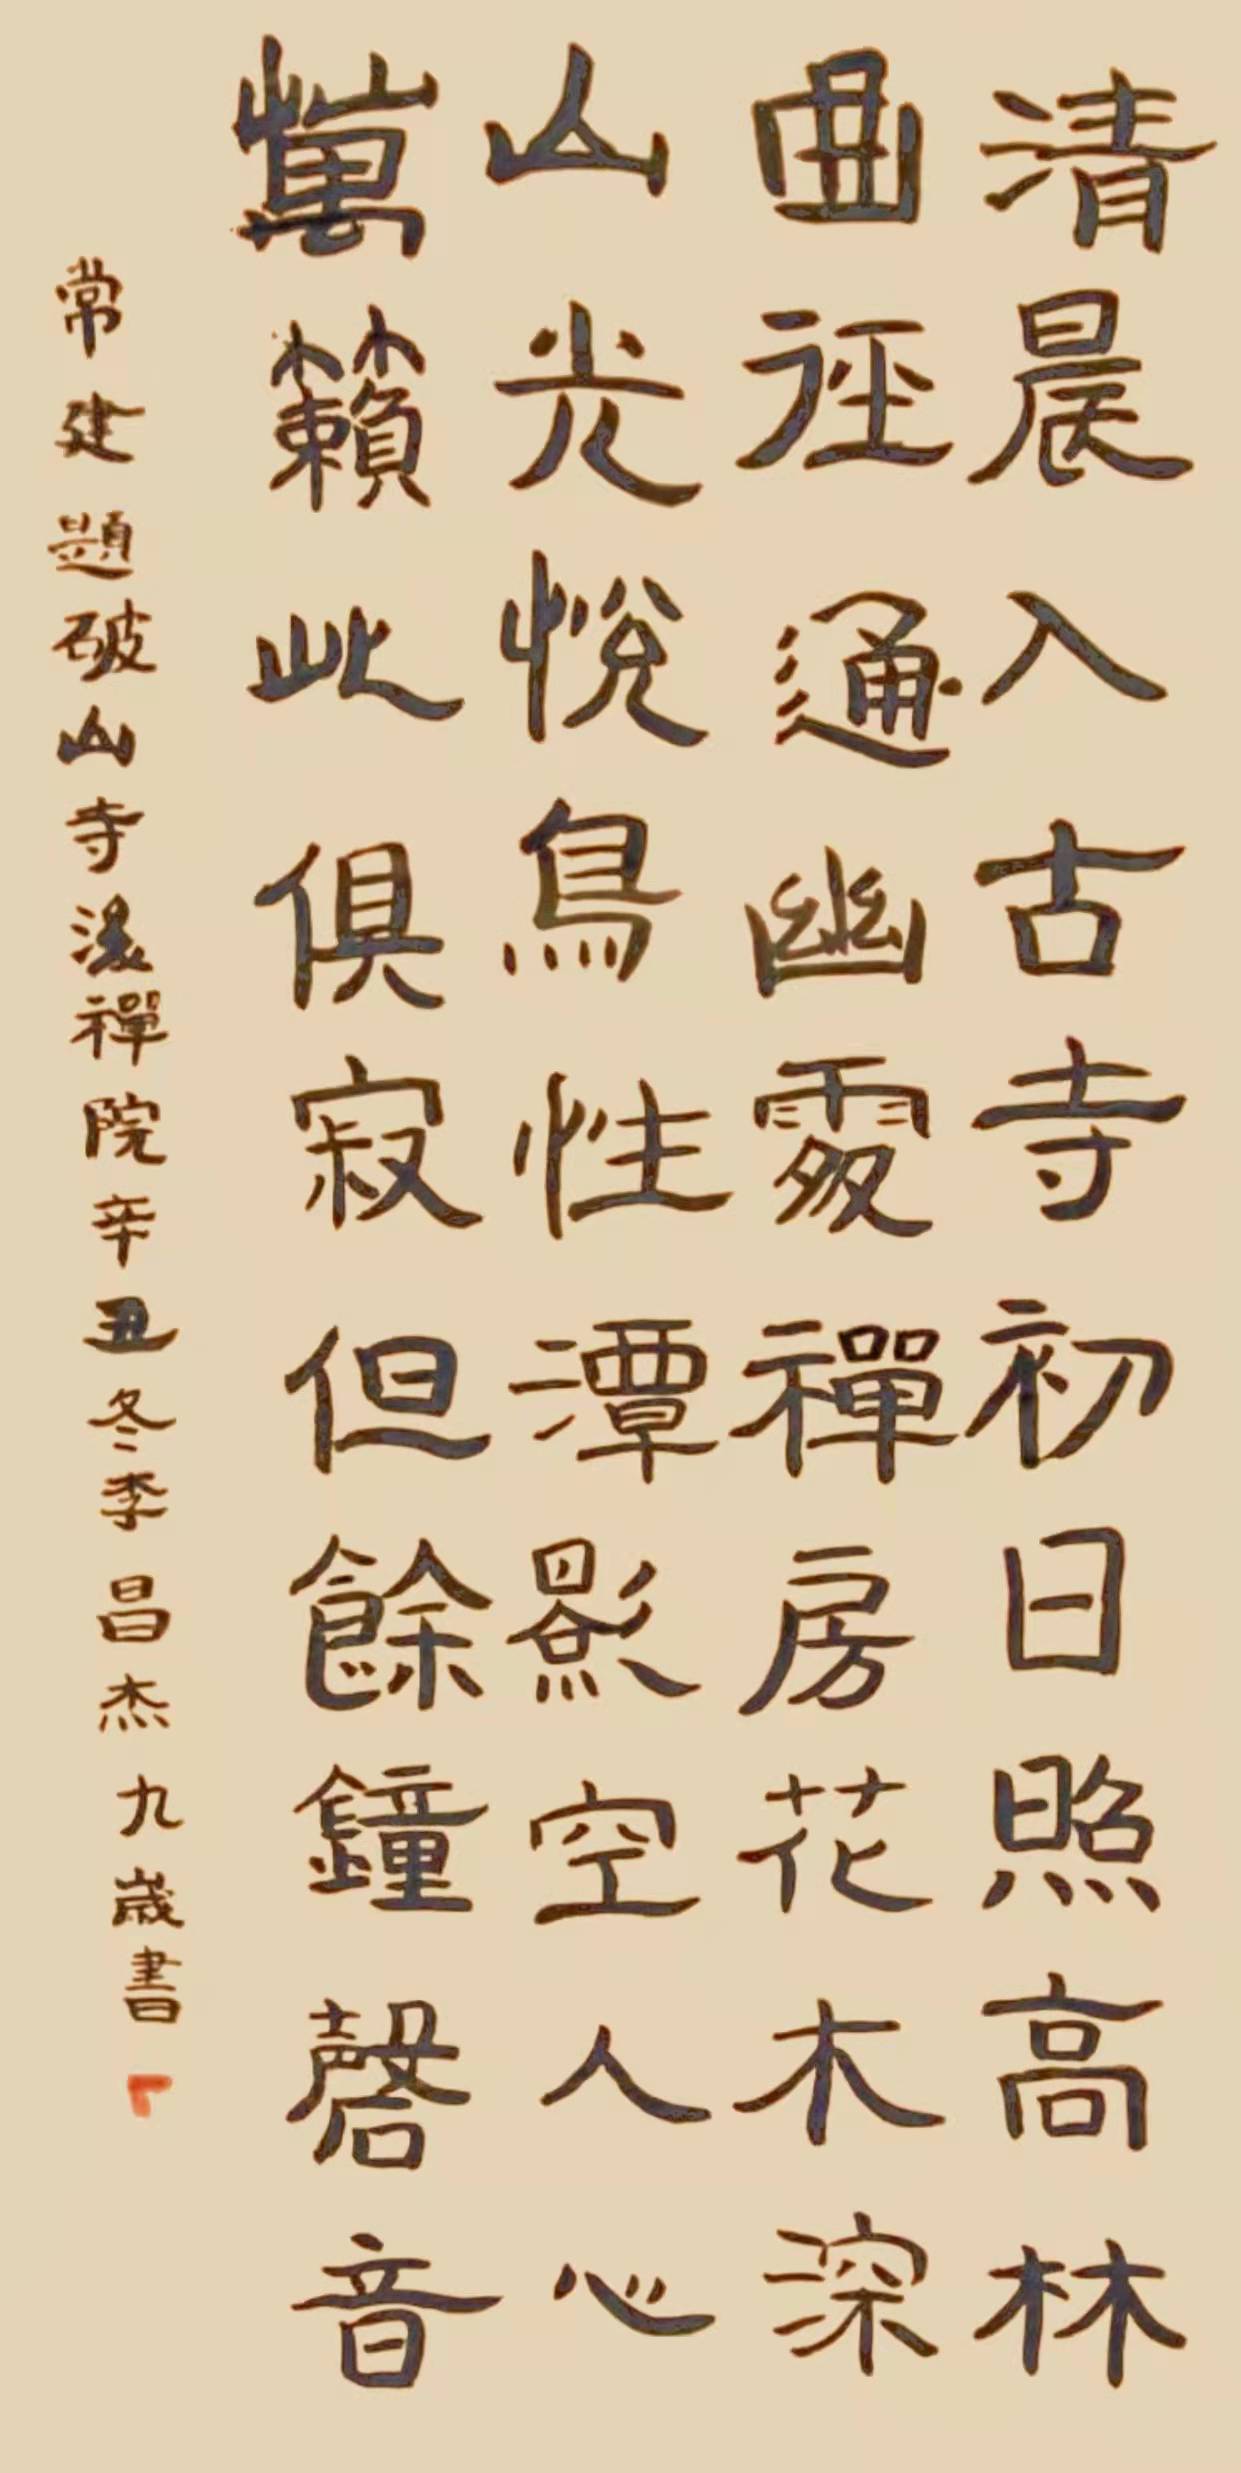 清晨入古寺初日照高林
曲径通幽處禪房花木深
山光悅鳥性潭影空人心
萬籟此俱寂但餘鐘磬音
常建題破山寺後禪院辛丑冬季昌杰九歲書